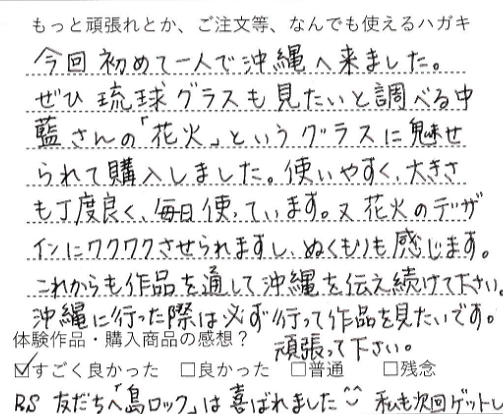 もっと頑張れとか、ご注文等、なんでも使えるハガキ
今回初めて一人で沖縄へ来ました。
ぜひ琉球グラスも見たいと調べる中
藍さんの「花火」というグラスに魅せ
られて購入しました。使いやすく、大きさ
も丁度良く、毎日使っています。又花火のデザ
インにワクワクさせられますし、ぬくもりも感じます。
これからも作品を通して沖縄を伝え続けて下さい。
沖縄に行った際は必ず行って作品を見たいです。
頑張って下さい。
体験作品・購入商品の感想？
☑すごく良かった □良かった □普通 □残念
P.S 友だちへ「島ロック」は喜ばれました^^ 私も次回ゲットし